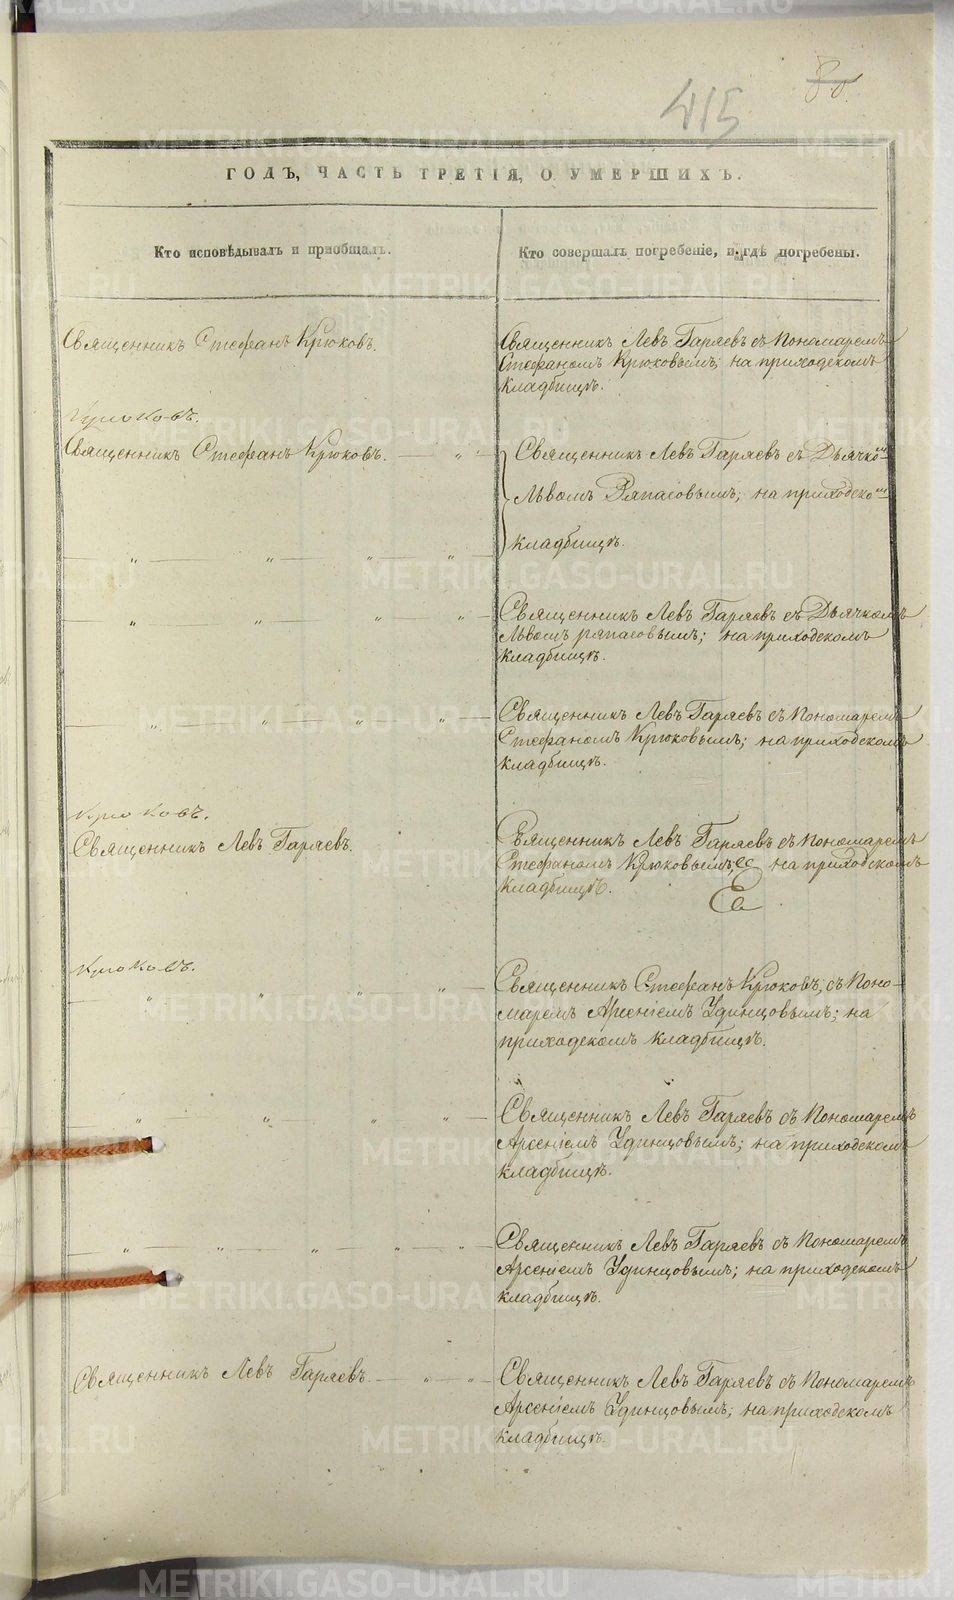 415
ГОДЪ, ЧАСТЬ ТРЕТІЯ, О УМЕРШИХЪ.
Кто исповѣдывалъ и пріобщалъ.
Кто совершалъ погребеніе, и гдѣ погребены.
Священникъ Стефанъ Крюковъ.
Священникъ Левъ Гаряевъ съ Пономаремъ
Стефаномъ Крюковымъ; на приходскомъ
кладбищѣ.
Крюковъ.
Священникъ Стефанъ Крюковъ. — „ —
Священникъ Левъ Гаряевъ съ Дьячком
Львомъ Ряпасовымъ; на приходском
кладбищѣ.
— „ — „ — „ — „ —
— „ — „ — „ — „ —
Священникъ Левъ Гаряевъ съ Дьячкомъ
Львомъ ряпасовымъ; на приходскомъ
кладбищѣ.
— „ — „ — „ — „ —
Священникъ Левъ Гаряевъ съ Пономаремъ
Стефаномъ Крюковымъ; на приходскомъ
кладбищѣ.
Крюковъ.
Священникъ Левъ Гаряевъ.
Священникъ Левъ Гаряевъ съ Пономаремъ
Стефаномъ Крюковымъ; на приходскомъ
кладбищѣ.
Крюковъ.
— „ — „ — „ — „ —
Священникъ Стефанъ Крюковъ, съ Поно-
маремъ Арсеніемъ Удинцовымъ; на
приходскомъ кладбищѣ.
— „ — „ — „ — „ —
Священникъ Левъ Гаряевъ съ Пономаремъ
Арсеніемъ Удинцовымъ; на приходскомъ
кладбищѣ.
— „ — „ — „ — „ — „ —
Священникъ Левъ Гаряевъ съ Пономаремъ
Арсеніемъ Удинцовымъ; на приходскомъ
кладбищѣ.
Священникъ Левъ Гаряевъ. — „ — „ —
Священникъ Левъ Гаряевъ съ Пономаремъ
Арсеніемъ Удинцовымъ; на приходскомъ
кладбищѣ.
METRIKI.GASO-URAL.RU